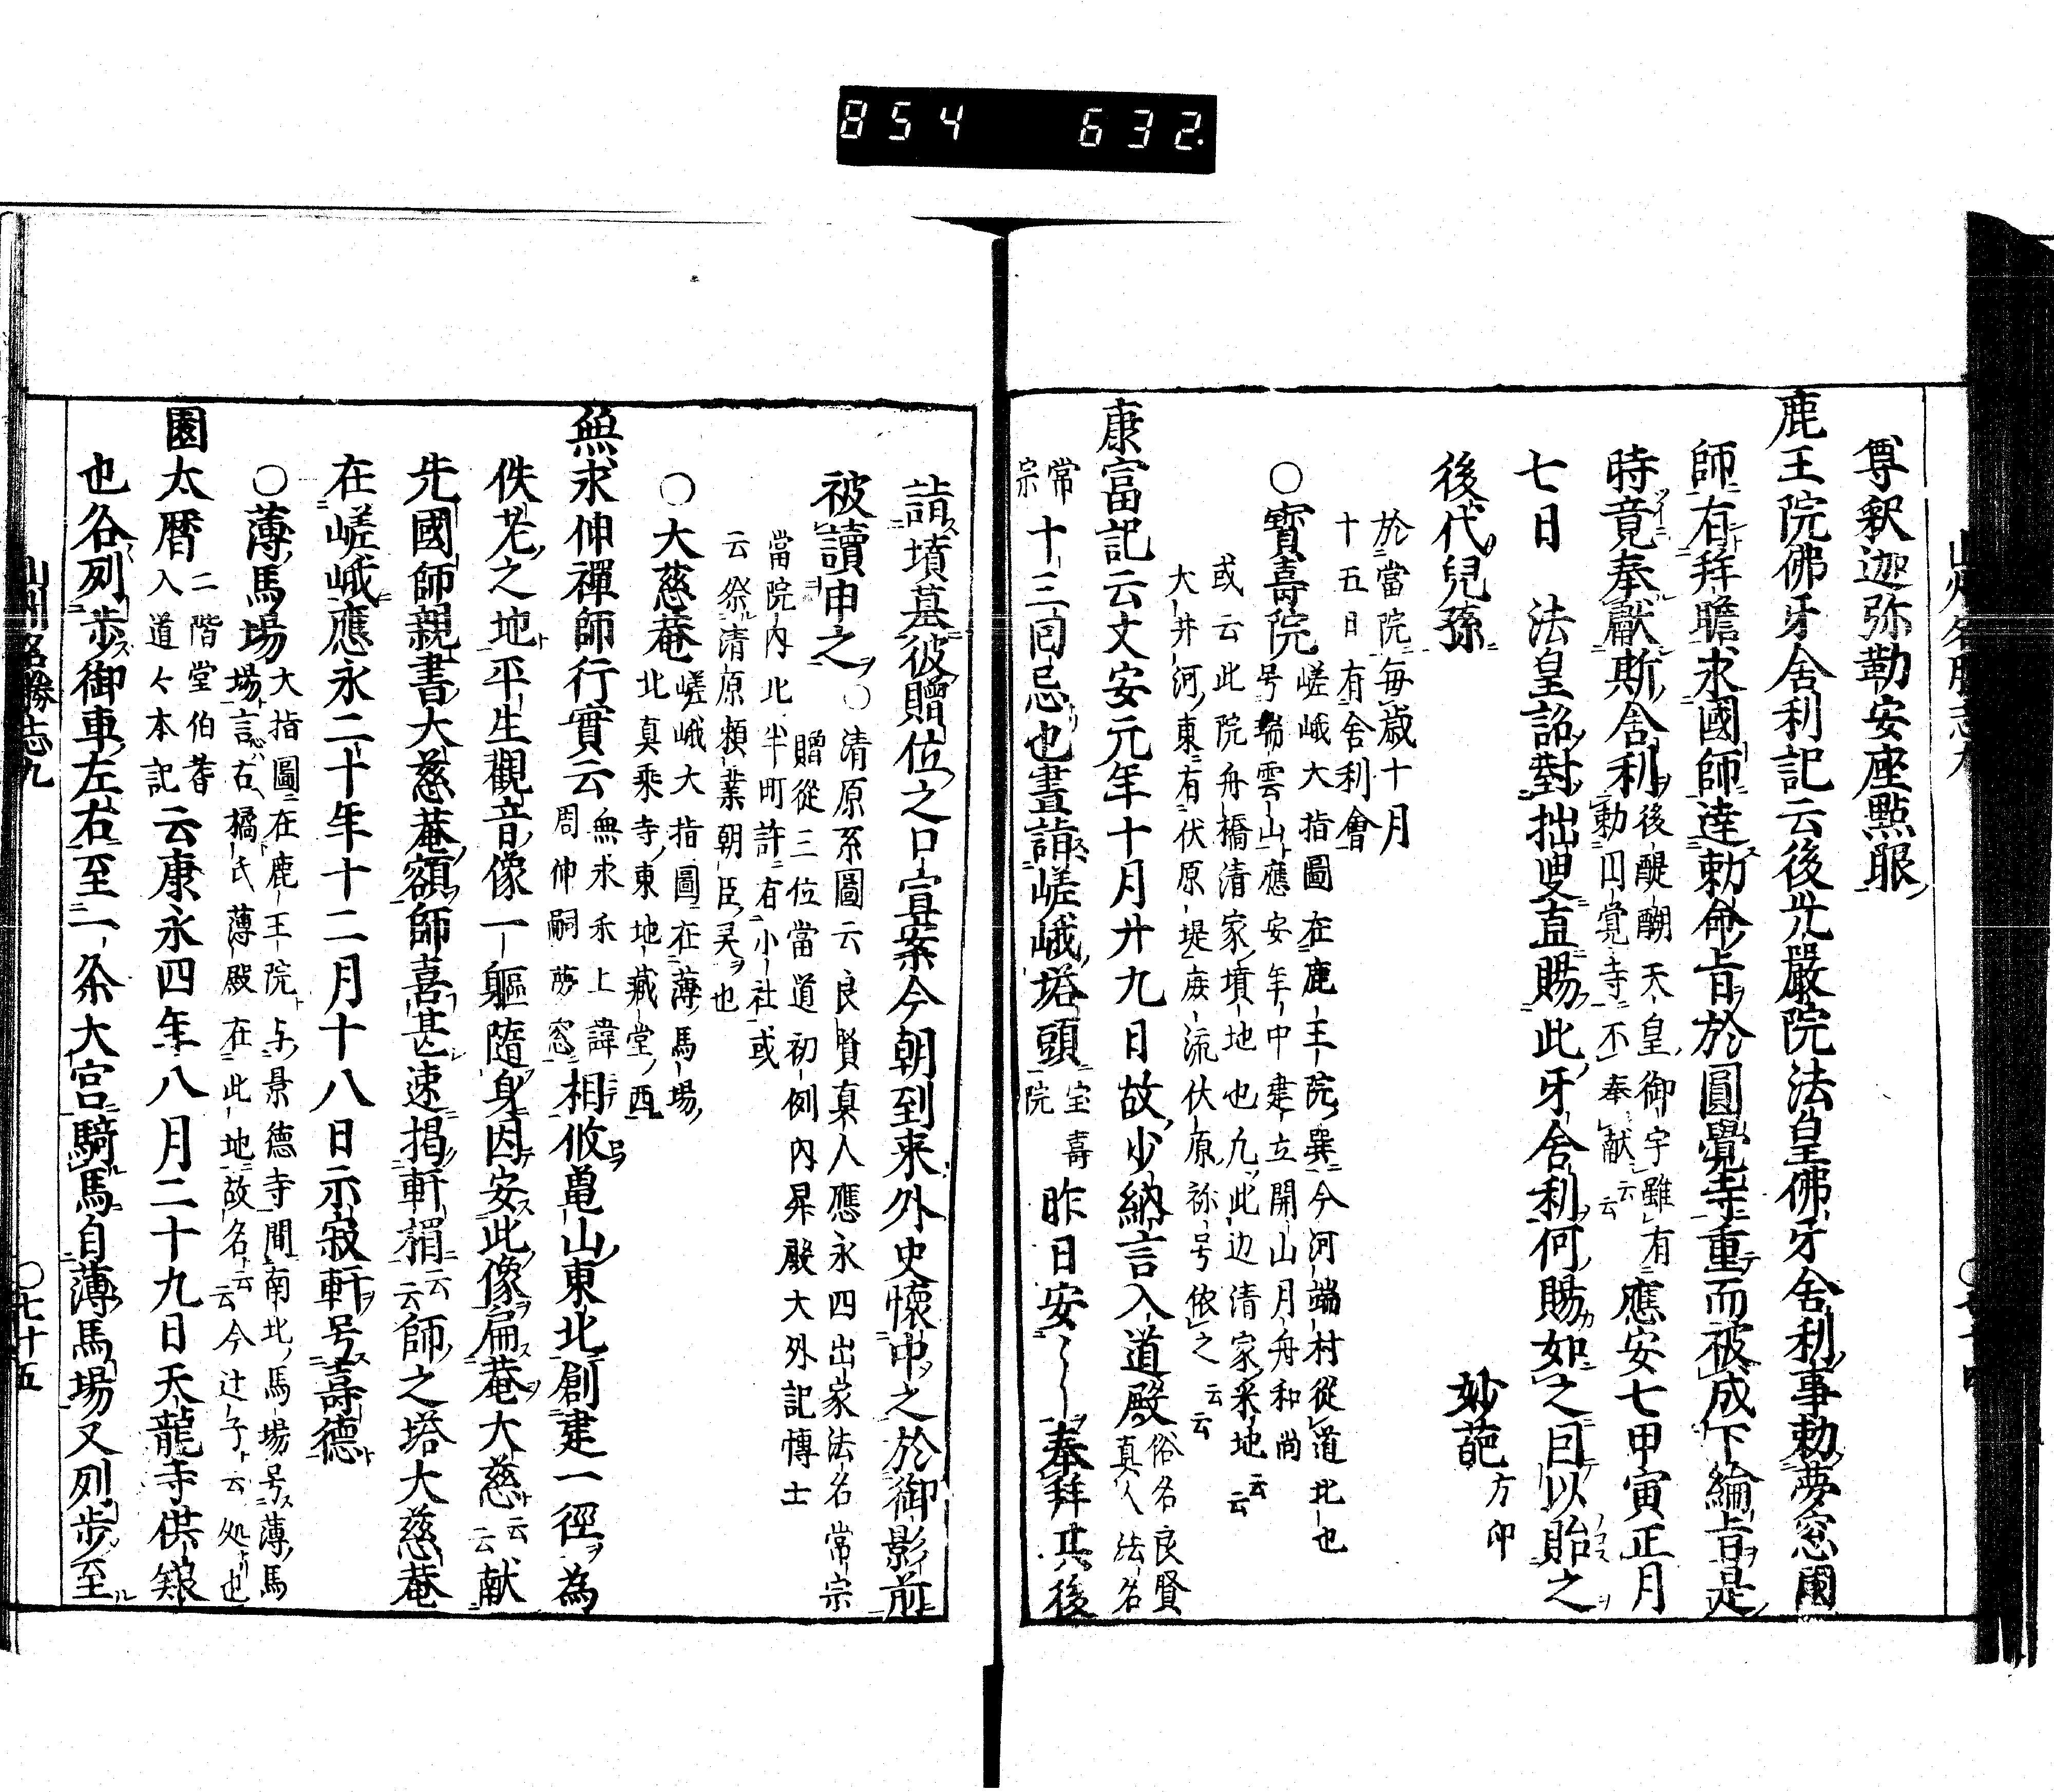 854 632
尊釈迦弥勒安座點眼
鹿王院佛牙舎利記云後光嚴院法皇佛牙舎利事勅夢窓國
師有拜瞻求國師達勅命旨於圓覺寺重而被成下綸旨是
時竟奉獻斯舎利
後醍醐天皇御宇雖有
勅円覚寺不奉献云云
應安七甲寅正月
七日 法皇詔對拙叟直賜此牙舎利何賜如之曰以貽之
後代兒孫 妙葩方印
於當院毎歳十月
十五日有舎利會
○寳壽院
嵯峨大指圖在鹿王院巽今河端村從道北也
号瑞雲山應安年中建立開山月舟和尚
或云此院舟橋清家墳地也凢此辺清家采地云云
大井河東有伏原堤庶流伏原祢号依之云云
康富記云文安元年十月廾九日故少納言入道殿
俗名良賢
真人法名
常宗
十三回忌也晝詣嵯峨塔頭
宝壽院
昨日安〻〻奉拜其後
詣墳墓彼贈位之口宣案今朝到来外史懷中之於御影前
被讀申之
○清原系圖云良賢真人應永四出家法名常宗
贈從三位當道初例内昇殿大外記博士
當院内北半町許有小社或
云祭清原頼業朝臣灵也
○大慈菴
嵯峨大指圖在薄馬場
北真乘寺東地藏堂西
無求伸禪師行實云
無求禾上諱
周伸嗣夢窓
相攸亀山東北創建一徑為
佚老之地平生觀音像一軀隨身因安此像扁菴大慈云云献
先國師親書大慈菴額師喜甚速掲軒楣云云師之塔大慈菴
在嵯峨應永二十年十二月十八日示寂軒号壽德
○薄馬場
大指圖在鹿王院与景德寺間南北馬場号薄馬
場言忩右橘氏薄殿在此地故名云云今辻子云処也
園太暦
二階堂伯耆
入道々本記
云康永四年八月二十九日天龍寺供養
也各列歩御車左右至一条大宮騎馬自薄馬場又列歩至
山州名勝志九
○七十五